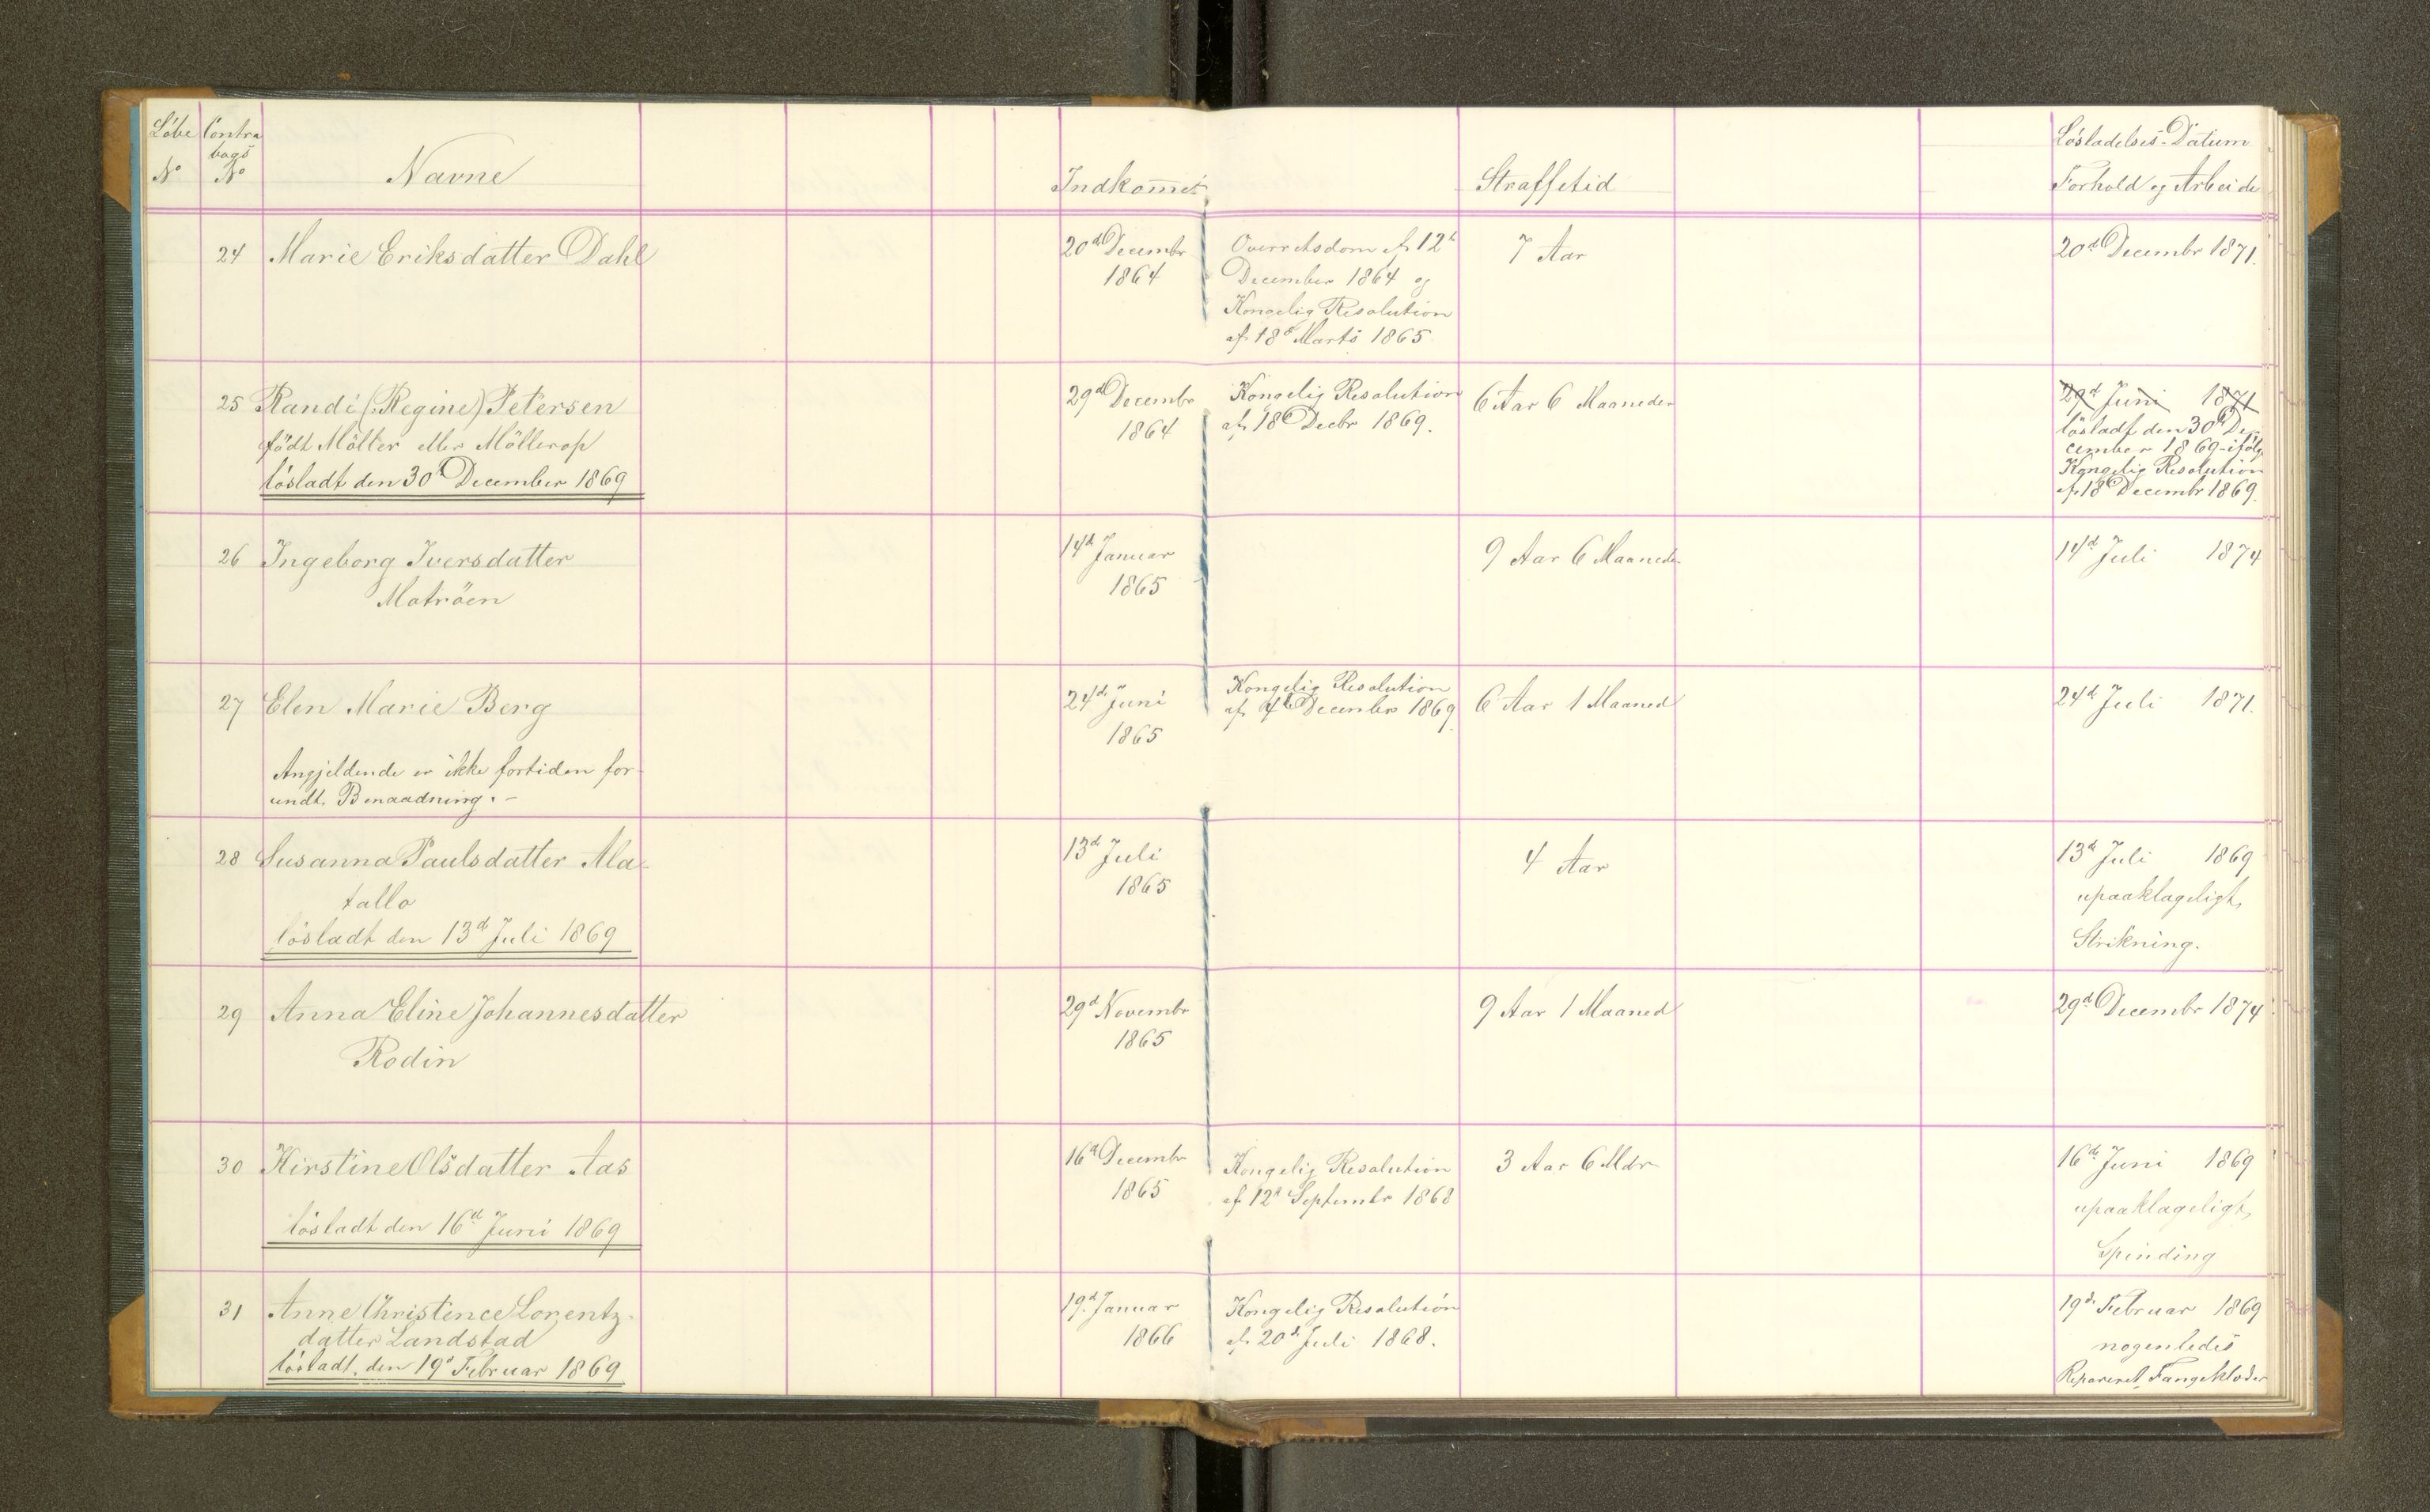 Löbe No
Contra bogs No
Navne
Indkomet
Straffetid
Lösladelses-Datum
Forhold og Arbeide
24 Marie Eriksdatter Dahl
20d Decembr
1864
Overretsdom af 12t
December 1864 og
Kongelig Resolution
af 18d Marts 1865
7 Aar
20d Decembr 1871.
25 Randi (: Regine) Petersen
födt Möller eller Möllerop
lösladt den 30t December 1869
29d Decembr
1864
Kongelig Resolution
af 18 Decbr 1869.
6 Aar 6 Maaneder
29d Juni 1871
lösladt den 30t De-
cember 1869 ifölg
Kongelig Resolution
af 18t Decembr 1869.
26 Ingeborg Iversdatter
Moträen
14d Januar
1865
9 Aar 6 Maaneder
14d Juli 1874
27 Elen Marie Berg
Angjeldende er ikke fortiden for-
undt Benaadning. -
24d Juni
1865
Kongelig Resolution
af 4t December 1869
6 Aar 1 Maaned
24d Juli 1871.
28 Susanna Paulsdatter Ala-
tallo
lösladt den 13d Juli 1869
13d Juli
1865
4 Aar
13d Juli 1869
upaaklageligt,
Strikning.
29 Anna Eline Johannesdatter
Rodin
29d Novembr
1865
9 Aar 1 Maaned
29d Decembr 1874
30 Kirstine Olsdatter Aas
lösladt den 16d Juni 1869
16d Decembr
1865
Kongelig Resolution
af 12t Septembr 1868
3 Aar 6 Mdr
16d Juni 1869
upaaklageligt,
Spinding
31 Anne Christence Lorentz-
datter Landstad
lösladt den 19d Februar 1869
19d Januar
1866
Kongelig Resolution
af 20d Juli 1868.
19d Februar 1869
nogenledes
Repareret Fangeklæder